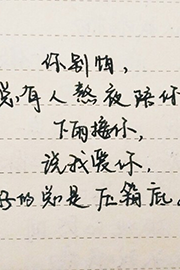 你别怕,
总有人熬夜陪你
下雨接你,
说我爱你,
好的总是压箱底。